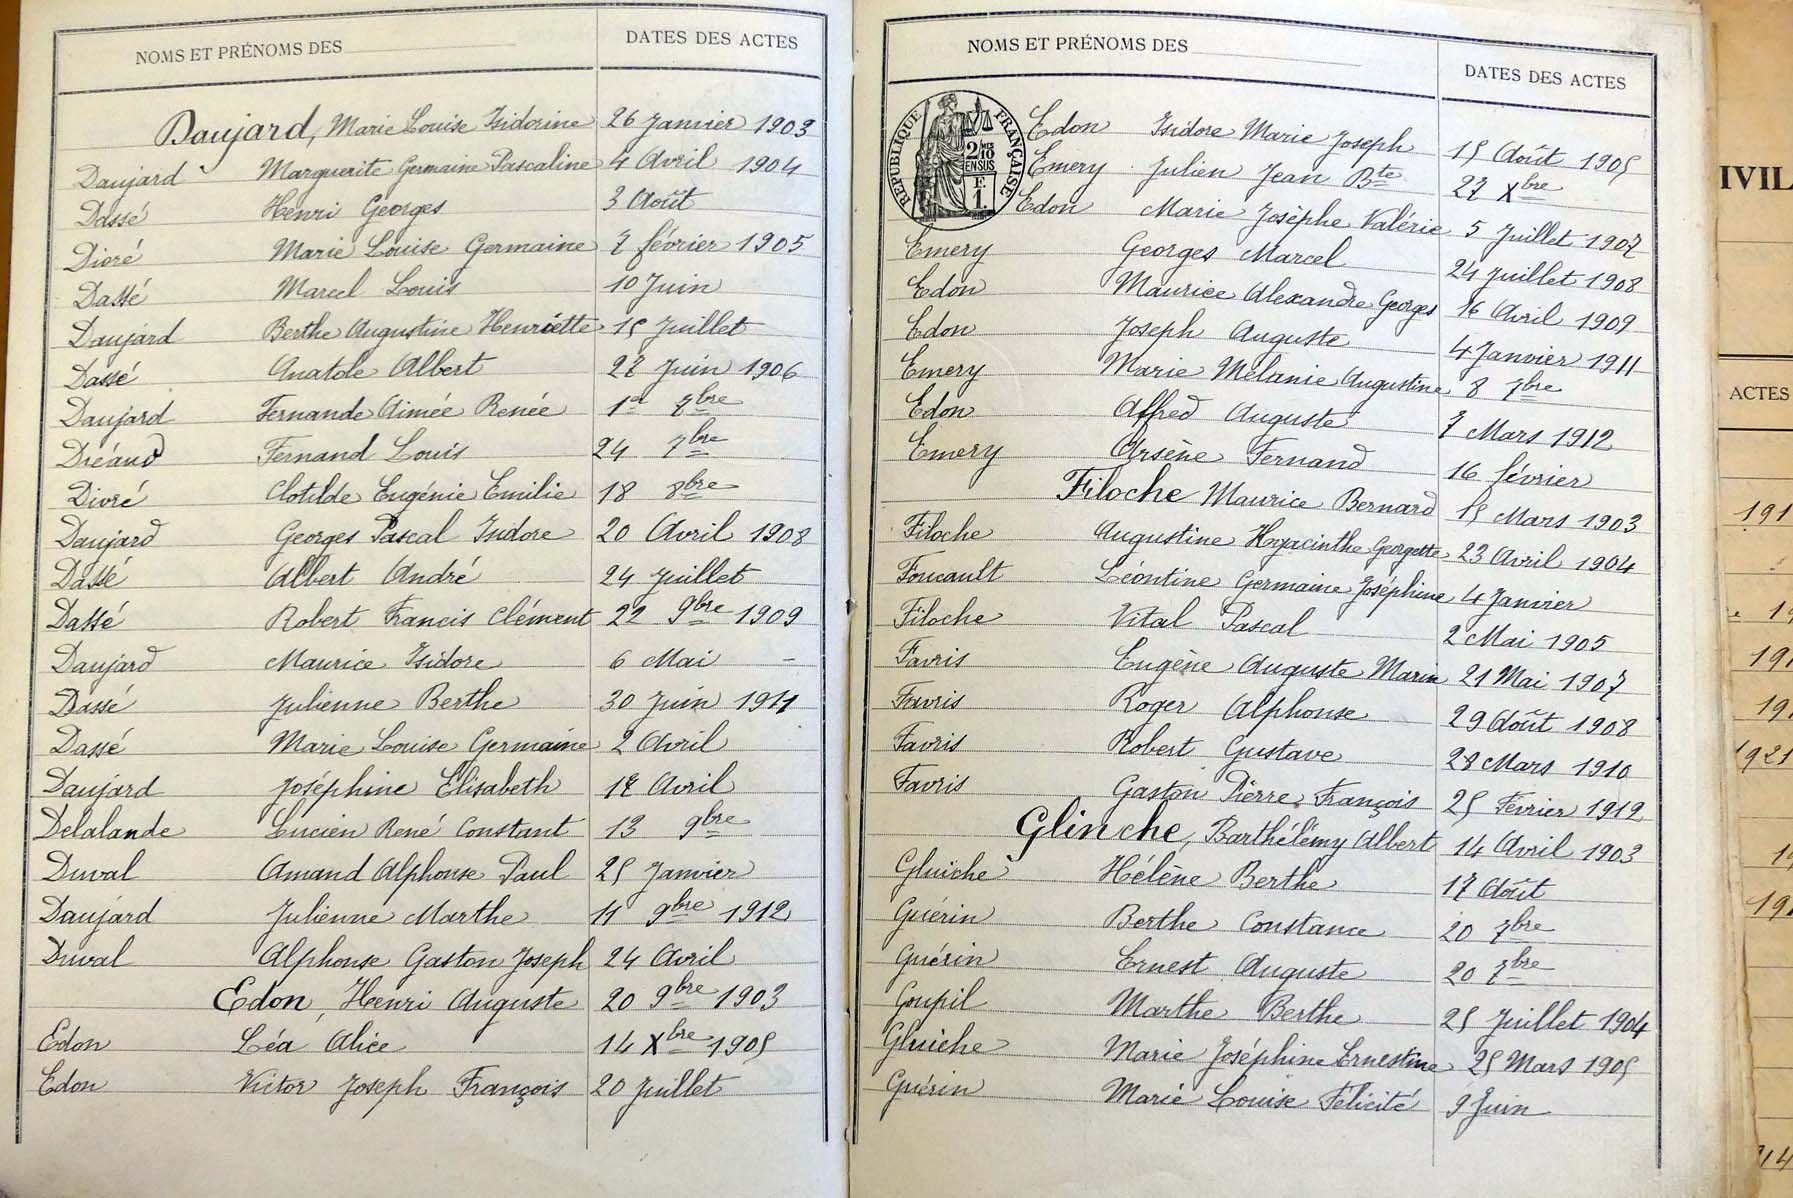 NOMS ET PRÉNOMS DES DATES DES ACTES
Daujard, Marie Louise Isidorine 26 Janvier 1903
Daujard Marguerite Germaine Pascaline 4 Avril 1904
Dassé Henri Georges 3 Août
Dioré Marie Louise Germaine 7 février 1905
Dassé Marcel Louis 10 Juin
Daujard Berthe Augustine Henriette 15 Juillet
Dassé Anatole Albert 27 Juin 1906
Daujard Fernande Aimée Renée 1er 7bre
Dréaud Fernand Louis 24 7bre
Divré Clotilde Eugénie Emilie 18 8bre
Daujard Georges Pascal Isidore 20 Avril 1908
Dassé Albert André 24 Juillet
Dassé Robert Francis Clément 22 9bre 1909
Daujard Maurice Isidore 6 Mai -
Dassé Julienne Berthe 30 Juin 1911
Dassé Marie Louise Germaine 2 Avril
Daujard Joséphine Elisabeth 17 Avril
Delalande Lucien René Constant 13 9bre
Duval Amand Alphonse Paul 25 Janvier
Daujard Julienne Marthe 11 9bre 1912
Duval Alphonse Gaston Joseph 24 Avril
Edon, Henri Auguste 20 9bre 1903
Edon Léa Alice 14 Xbre 1905
Edon Victor Joseph François 20 Juillet
NOMS ET PRÉNOMS DES DATES DES ACTES
RÉPUBLIQUE FRANÇAISE
2/10 MES
EN SUS
F.
1.
Edon Isidore Marie Joseph 15 Août 1905
Emery Julien Jean Bte 27 Xbre
Edon Marie Josèphe Valérie 5 Juillet 1907
Emery Georges Marcel 24 Juillet 1908
Edon Maurice Alexandre Georges 16 Avril 1909
Edon Joseph Auguste 4 Janvier 1911
Emery Marie Mélanie Augustine 8 7bre
Edon Alfred Auguste 7 Mars 1912
Emery Arsène Fernand 16 février
Filoche Maurice Bernard 15 Mars 1903
Filoche Augustine Hyacinthe Georgette 23 Avril 1904
Foucault Léontine Germaine Joséphine 4 Janvier
Filoche Vital Pascal 2 Mai 1905
Favris Eugène Auguste Marin 21 Mai 1907
Favris Roger Alphonse 29 Août 1908
Favris Robert Gustave 28 Mars 1910
Favris Gaston Pierre François 25 Février 1912
Glinche, Barthélémy Albert 14 Avril 1903
Gluiche Hélène Berthe 17 Août
Guérin Berthe Constance 20 7bre
Guérin Ernest Auguste 20 7bre
Goupil Marthe Berthe 25 Juillet 1904
Gluiche Marie Joséphine Ernestine 25 Mars 1905
Guérin Marie Louise Félicité 9 Juin
IVIL
ACTES
191
19
191
19
1921
19
191
14